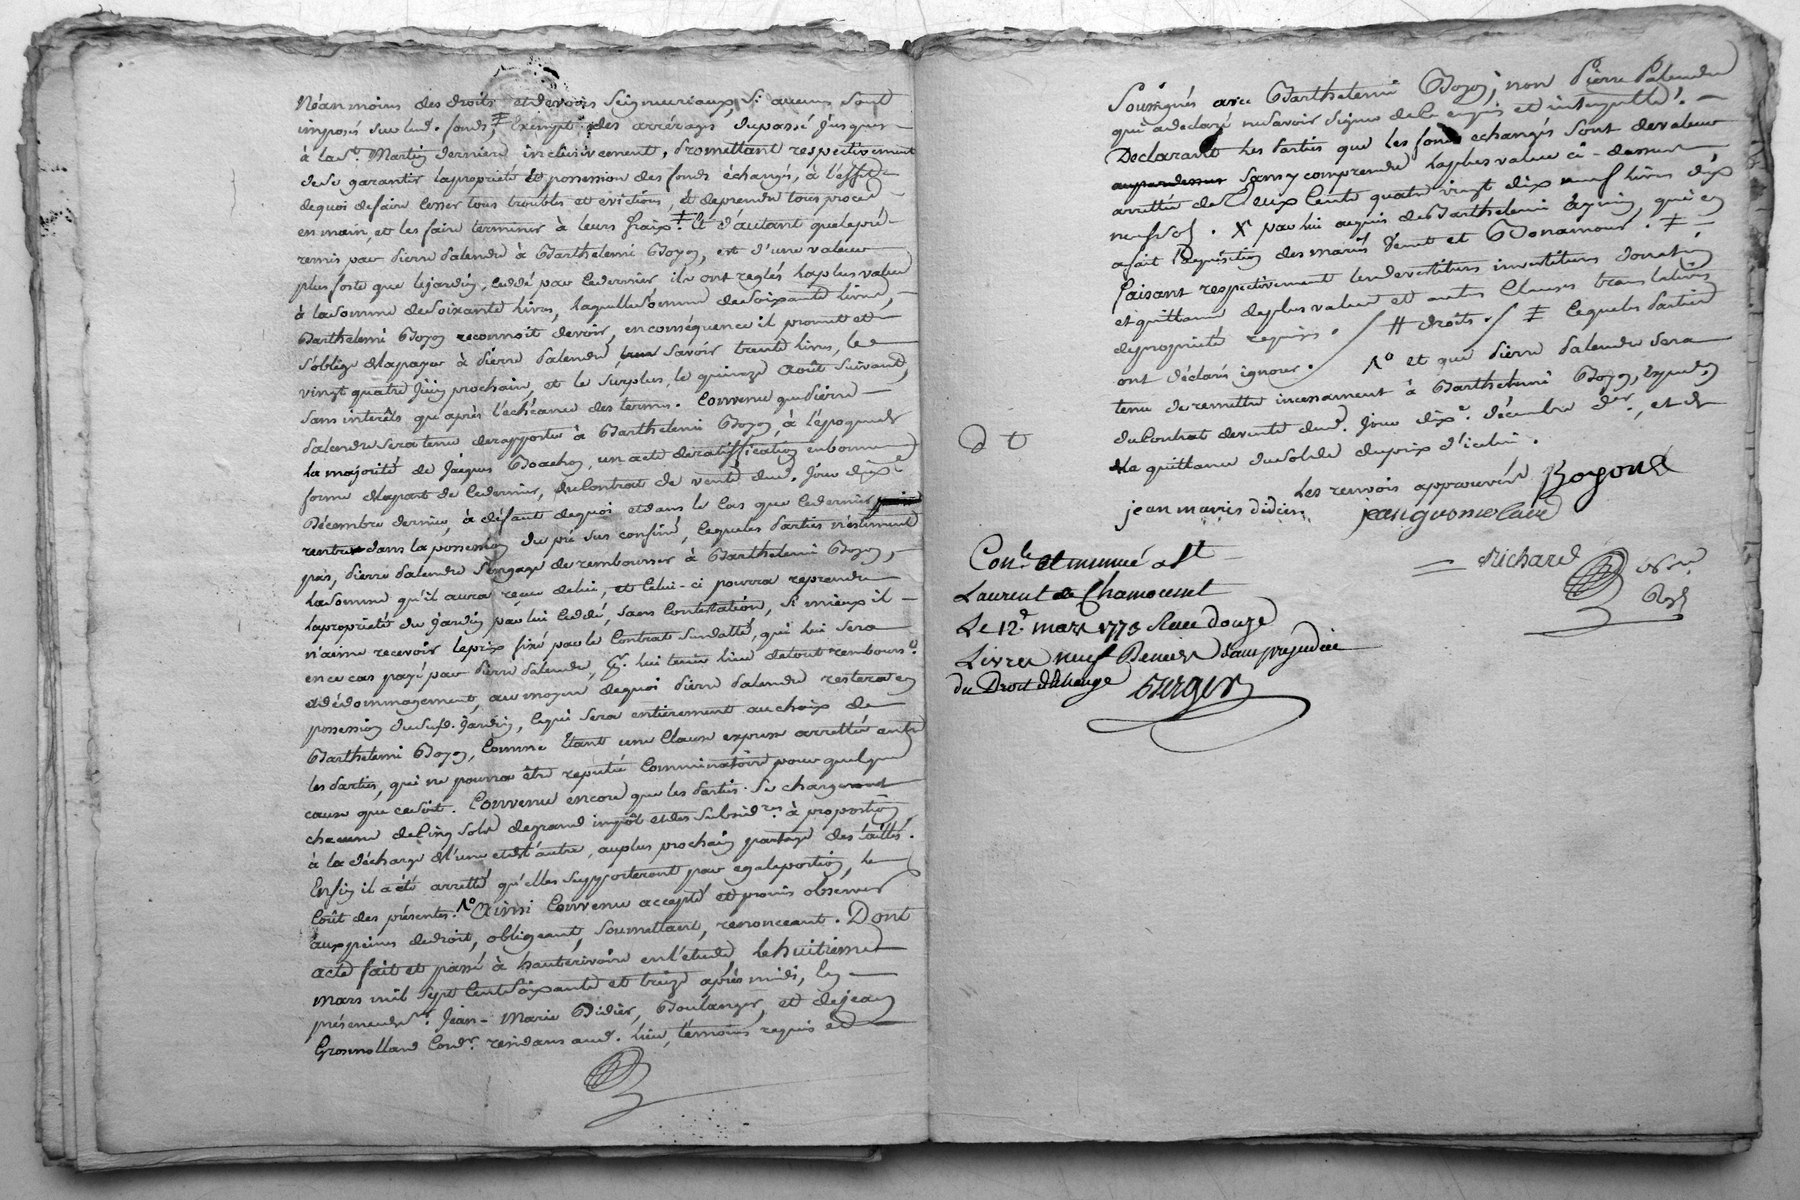 Néanmoins des droits et devoirs Seigneuriaux, Si aucuns sont
imposés sur lesd. fonds, ‡ Exempts des arrérages du passé Jusques
à la St. Martin derniere inclusivement, Promettant respectivement
de se garantir la proprieté et possession des fonds échangés, à l'effet
de quoi de faire Cesser tous troubles et evictions, et de prendre tous procès
en main, et les faire terminer à leurs fraix. ‡ Et d'autant que le pré
remis par Pierre Palandre à Barthelemi Boyon, est d'une valeur
plus forte que le jardin, Ceddé par Ce dernier ils ont reglés la plus value
à la Somme de Soixante livres, laquelle Somme de Soixante livres,
Barthelemi Boyon reconnoit devoir, en conséquence il promet et
s'oblige de la payer à Pierre Palandre, Savoir trente livres, le
vingt quatre Juin prochain, et le Surplus, le quinze Août Suivant,
Sans interêts qu'après l'échéance des termes. Convenu que Pierre
Palandre Sera tenu de rapporter à Barthelemi Boyon, à l'époque de
la majorité de Jacques Boachon, un acte de ratiffication en bonne
forme de la part de Ce dernier, du Contrat de vente dud. Jour dixe.
Décembre dernier, à défaut de quoi et dans le Cas que Ce dernier
rentre dans la possession du pré Sus confiné, Ce que les Parties n'estiment
pas, Pierre Palandre S'engage de rembourser à Barthelemi Boyon,
La Somme qu'il aura reçue de lui, et Celui-ci pourra reprendre
la proprieté du Jardin par lui Ceddé, Sans Contestation, Si mieux il
n'aime recevoir le prix fixé par le Contrat Susdatté, qui lui Sera
en ce cas payé par Pierre Palandre, pr. lui tenir lieu de tout rembourst.
et dédommagement, au moyen de quoi Pierre Palandre restera en
possession du Susd. Jardin, Ce qui Sera entièrement au choix de
Barthelemi Boyon, Comme Etant une Clause expresse arrettée entre
les Parties, qui ne pourra être reputée Comminatoire pour quelque
cause que ce Soit. Convenu encore que les Parties Se chargeront
chacune de Cinq Sols de grand impôt et des Subsidres. à proportion
à la décharge de l'une et de l'autre, au plus prochain partage des tailles.
Enfin il a été arretté qu'elles Supporteront par egale portion, le
Coût des présentes. Ʌ° Ainsi Convenu accepté et promis observer
aux peines de droit, obligeant, Soumettant, renonceant. Dont
acte fait et passé à hauterivoire en l'étude, le huitieme
mars mil Sept Cent Soixante et treize après midi, En
présence de Sr. Jean-Marie Didier, Boulanger, et de jean
Grosmolland Cordr. residans aud. Lieu, témoins requis et
Sousignés avec Barthelemi Boyon, non Pierre Palandre
qui a declaré ne Savoir Signer de Ce enquis et interpellé.
Declarant les Parties que les fonds echangés Sont de valeur
Sans y comprendre la plus value ci-dessus
arrettée de Deux Cents quatre vingt dix neuf livres dix
neuf sol. X par lui acquis de Barthelemi qui en
a fait l'acquisition des mariés et Bonamour. ‡
faisant respectivement les devestitures investitures Donation
et quittance de plus value et autres Clauses translatives
de proprieté requises. / # droits. / ‡ Ce que les Parties
ont déclaré ignorer. / Ʌ° et que Pierre Palandre Sera
tenu de remettre incessament à Barthelemi Boyon, Expédon.
du Contrat de vente dud. Jour dixe. décembre der., et de
la quittance du Solde du prix d'icelui.
Les renvois approuvés Boyond
jean marie didier jean grosmolland
Richard
Conlé et minuté a St
Laurent de Chamousset
Le 12e. mars 1773 Reçu douze
Livres neuf Deniers Sans prejudice
du Droit d'Echange